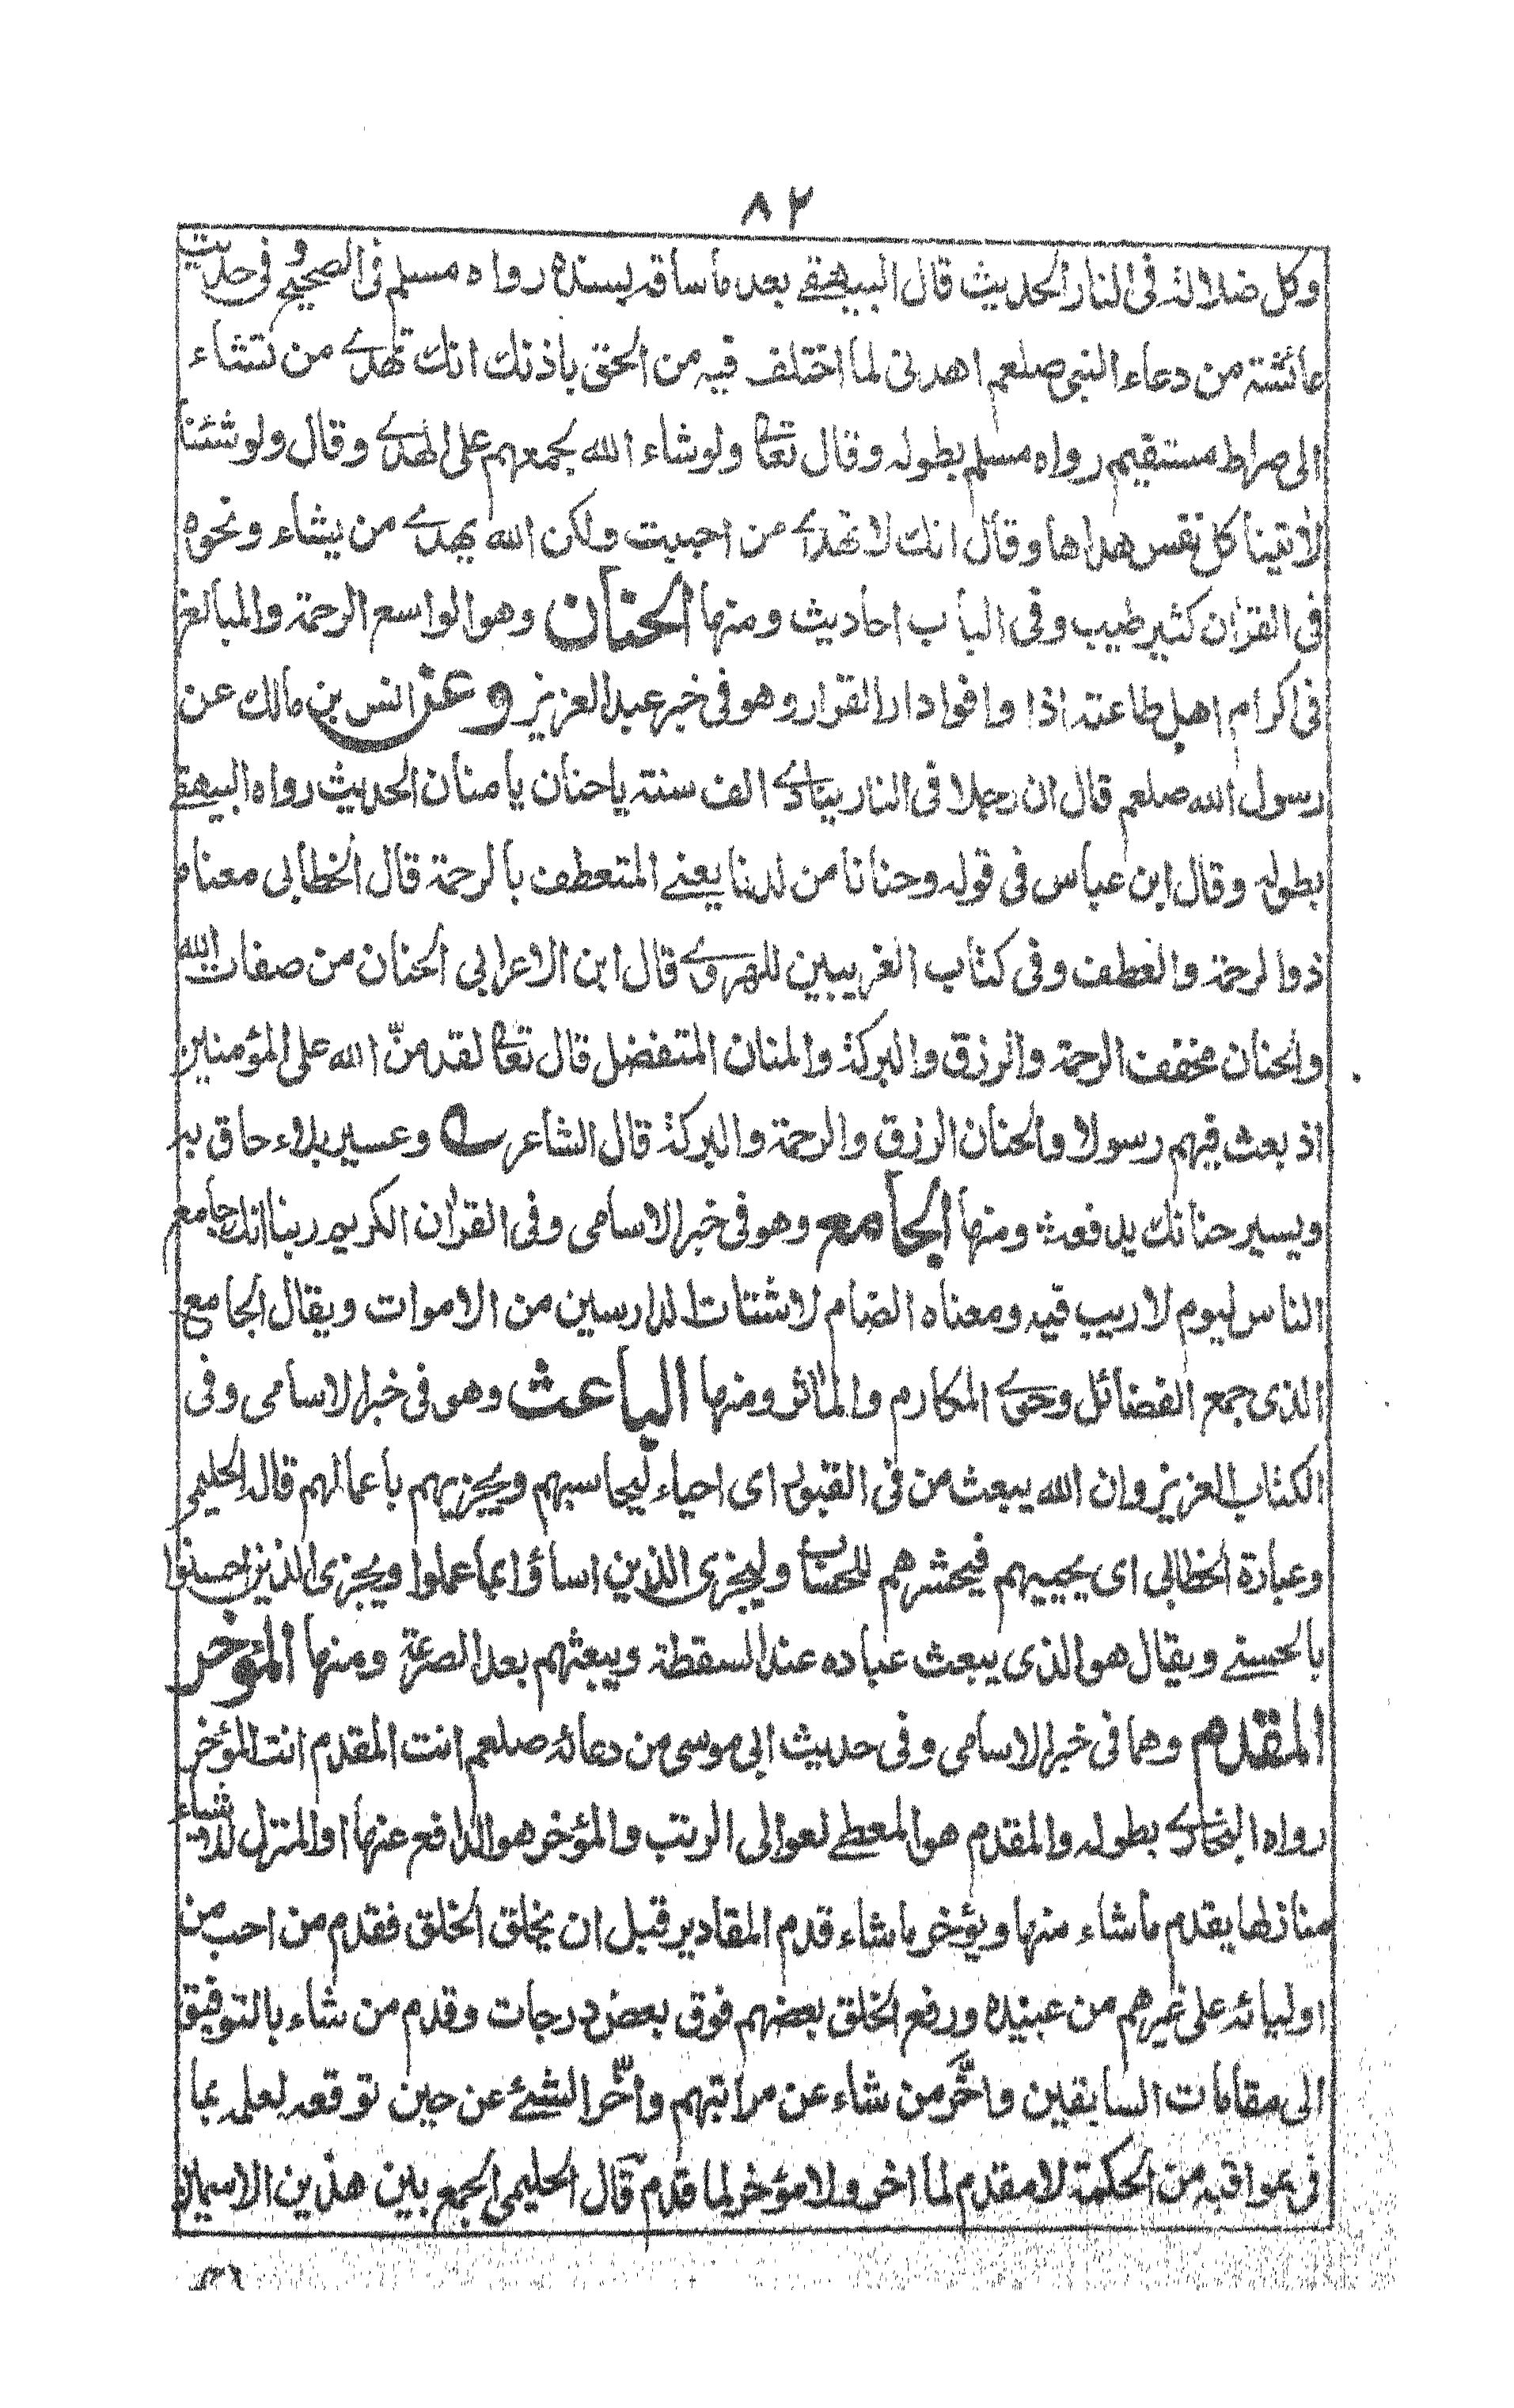 ٨٢
وكل ضلالة فى النار الحديث قال البيهقے بعد ما ساقه بسنده رواه مسلم فى الصحيح و فى حديث
عائشة من دعاء النبى صلعم اهدنى لما اختلف فيه من الحق باذنك انك تهدے من تشاء
الى صراط مستقيم رواه مسلم بطوله وقال تعالى ولو شاء الله لجمعهم على الهدے وقال ولو شئنا
لأتينا كل نفس هداها وقال انك لا تهدے من احببت ولكن الله يهدے من يشاء ونحوه
فى القران كثير طيب وفى الباب احاديث ومنها الحنان وهو الواسع الرحمة والمبالغ
فى اكرام اهل طاعته اذا وافوا دار القرار وهو فى خبر عبد العزيز وعن انس بن مالك عن
رسول الله صلعم قال ان رجلا فى النار ينادے الف سنة يا حنان يا منان الحديث رواه البيهقے
بطوله وقال ابن عباس فى قوله وحنانا من لدنا يعنے المتعطف بالرحمة قال الخطابى معناه
ذو الرحمة والعطف وفى كتاب الغريبين للهروے قال ابن الاعرابى الحنان من صفات الله
والحنان مخفف الرحمة والرزق والبركة والمنان المتفضل قال تعالى لقد منّ الله على المؤمنين
اذ بعث فيهم رسولا والحنان الرزق والرحمة والبركة قال الشاعر وعسير بلاء حاق به
ويسير حنانك يدفعه ومنها الجامع وهو فى خبر الاسامى وفى القران الكريم ربنا انك جامع
الناس ليوم لا ريب فيه ومعناه الضام لاشتات الدارسين من الاموات ويقال الجامع
الذى جمع الفضائل وحوے المكارم والمأثر ومنها الباعث وهو فى خبر الاسامى وفى
الكتاب العزيز وان الله يبعث من فى القبور اى احياء ليحاسبهم ويجزيهم باعمالهم قاله الحليمى
وعبارة الخطابى اى يحييهم فيحشرهم للحساب وليجزى الذين اساؤا بما عملوا ويجزى الذين احسنوا
بالحسنے ويقال هو الذى يبعث عباده عند السقطة ويبعثهم بعد الصرعة ومنها المؤخر
المقدم وهما فى خبر الاسامى وفى حديث ابى موسى من دعائه صلعم انت المقدم انت المؤخر
رواه البخارے بطوله والمقدم هو المعطے لعوالى الرتب والمؤخر هو الدافع عنها او المنزل الاشياء
منازلها يقدم ما شاء منها ويؤخر ما شاء قدم المقادير قبل ان يخلق الخلق فقدم من احب من
اوليائه على غيرهم من عبيده ورفع الخلق بعضهم فوق بعض درجات وقدم من شاء بالتوفيق
الى مقامات السابقين واخّر من شاء عن مراتبهم واخّر الشئے عن حين توقعه لعلمه بما
فى عواقبه من الحكمة لا مقدم لما اخر ولا مؤخر لما قدم قال الحليمى الجمع بين هذين الاسمين